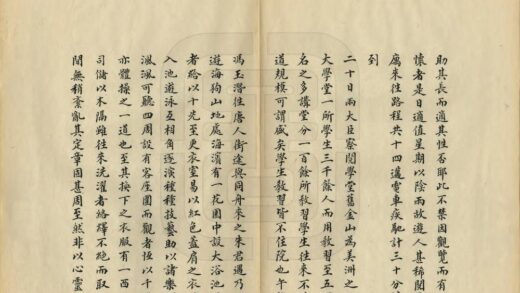 助其長而適其性否耶此不禁因觀覽而有
懷者是日適值星期以陰雨故遊人甚稀閱
厲來往路程共十四邁電車疾馳計三十分
到
二十日兩大臣察閱學堂舊金山為美洲之
大學堂一所學生三千餘人而用教習至五
名之多講堂分一百餘所教習學生往來不
道規模可謂盛矣學生教習皆不住院也午
馮玉潛往唐人街途與同舟來之朱君遇乃
遊海狗山地處海濱有一花園中設大浴池
者給以十先至更衣室易以紅色蓋肩之衣
入池遊泳互相角逐演種種技藝助以諸樂
渢渢可聽四周設有客座圍而觀者恆以千
亦體操之一道也至其換下之衣服有一西
司儲以木隔雖往來洗濯者絡繹不絕而取
閒無稍紊亂其定章固甚周至然非以心靈